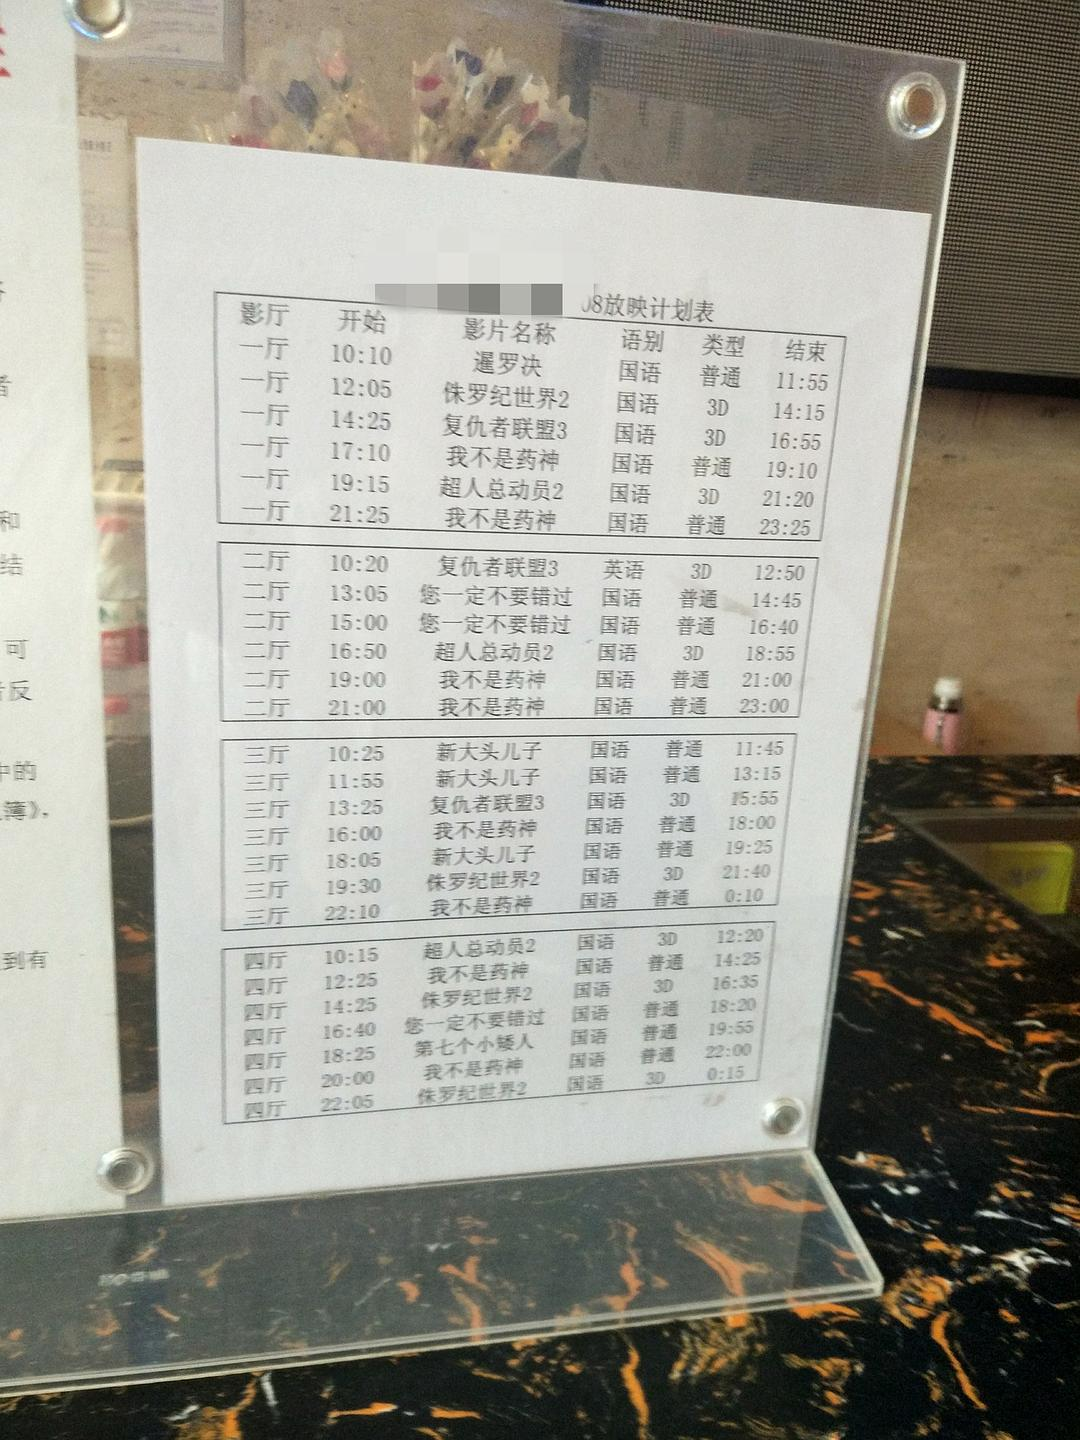 08放映计划表
影厅 开始 影片名称 语别 类型 结束
一厅 10:10 暹罗决 国语 普通 11:55
一厅 12:05 侏罗纪世界2 国语 3D 14:15
一厅 14:25 复仇者联盟3 国语 3D 16:55
一厅 17:10 我不是药神 国语 普通 19:10
一厅 19:15 超人总动员2 国语 3D 21:20
一厅 21:25 我不是药神 国语 普通 23:25
二厅 10:20 复仇者联盟3 英语 3D 12:50
二厅 13:05 您一定不要错过 国语 普通 14:45
二厅 15:00 您一定不要错过 国语 普通 16:40
二厅 16:50 超人总动员2 国语 3D 18:55
二厅 19:00 我不是药神 国语 普通 21:00
二厅 21:00 我不是药神 国语 普通 23:00
三厅 10:25 新大头儿子 国语 普通 11:45
三厅 11:55 新大头儿子 国语 普通 13:15
三厅 13:25 复仇者联盟3 国语 3D 15:55
三厅 16:00 我不是药神 国语 普通 18:00
三厅 18:05 新大头儿子 国语 普通 19:25
三厅 19:30 侏罗纪世界2 国语 3D 21:40
三厅 22:10 我不是药神 国语 普通 0:10
四厅 10:15 超人总动员2 国语 3D 12:20
四厅 12:25 我不是药神 国语 普通 14:25
四厅 14:25 侏罗纪世界2 国语 3D 16:35
四厅 16:40 您一定不要错过 国语 普通 18:20
四厅 18:25 第七个小矮人 国语 普通 19:55
四厅 20:00 我不是药神 国语 普通 22:00
四厅 22:05 侏罗纪世界2 国语 3D 0:15
者
和
结
可
反
中的
簿》,
到有